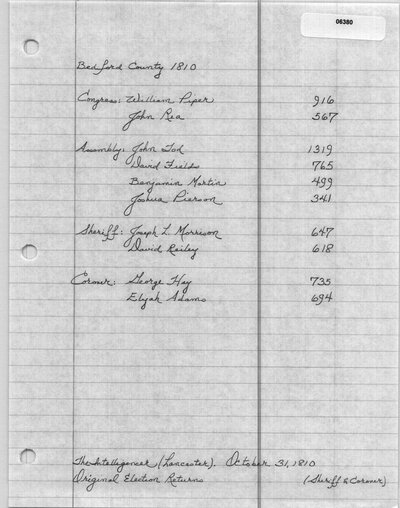 06380
Bedford County 1810
Congress: William Piper 916
John Rea 567
Assembly: John Tod 1319
David Fields 765
Benjamin Martin 499
Joshua Pierson 341
Sheriff: Joseph L. Morrison 647
David Reiley 618
Coroner: George Hay 735
Elijah Adams 694
The Intelligencer (Lancaster). October 31, 1810
Original Election Returns (Sheriff & Coroner)